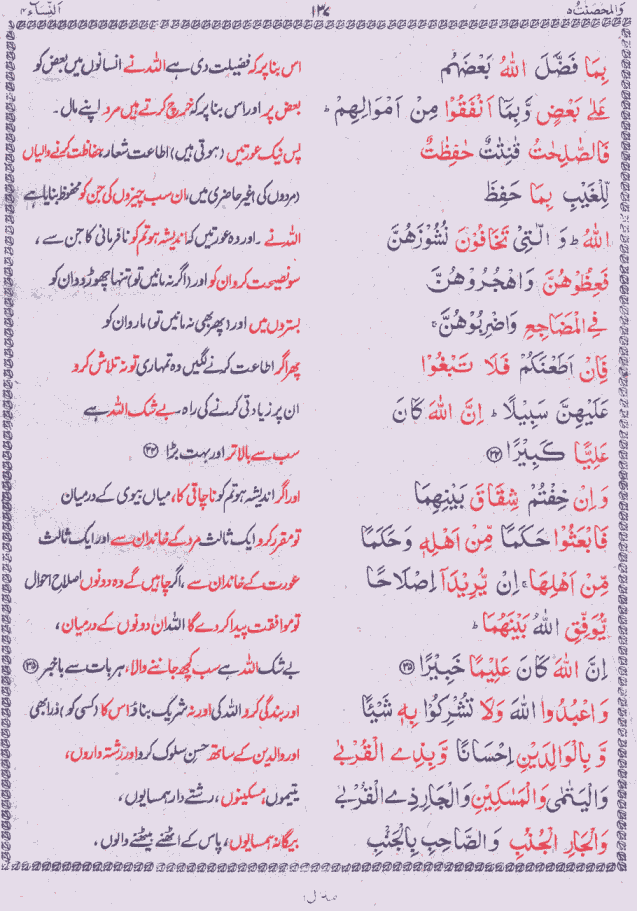 وَالمُحصَنٰتُ ۵
۱۳۷
اَلنِّسَآء ۴
بِمَا فَضَّلَ اللّٰهُ بَعْضَهُم
اس بنا پر کہ فضیلت دی ہے اللہ نے انسانوں میں بعض کو
عَلٰی بَعْضٍ وَّبِمَآ اَنْفَقُوْا مِنْ اَمْوَالِهِمْ ؕ
بعض پر اور اس بنا پر کہ خرچ کرتے ہیں مرد اپنے مال۔
فَالصّٰلِحٰتُ قٰنِتٰتٌ حٰفِظٰتٌ
پس نیک عورتیں (ہوتی ہیں) اطاعت شعار، حفاظت کرنے والیاں
لِّلْغَيْبِ بِمَا حَفِظَ
(مردوں کی) غیر حاضری میں، ان سب چیزوں کی جن کو محفوظ بنایا ہے
اللّٰهُ ؕ وَ الّٰتِیْ تَخَافُوْنَ نُشُوْزَهُنَّ
اللہ نے۔ اور وہ عورتیں کہ اندیشہ ہو تم کو نافرمانی کا جن سے،
فَعِظُوْهُنَّ وَاهْجُرُوْهُنَّ
سو نصیحت کرو ان کو اور (اگر نہ مانیں تو) تنہا چھوڑ دو ان کو
فِی الْمَضَاجِعِ وَاضْرِبُوْهُنَّ ۚ
بستروں میں اور (پھر بھی نہ مانیں تو) مارو ان کو
فَاِنْ اَطَعْنَكُمْ فَلَا تَبْغُوْا
پھر اگر اطاعت کرنے لگیں وہ تمہاری تو نہ تلاش کرو
عَلَيْهِنَّ سَبِيْلًا ؕ اِنَّ اللّٰهَ كَانَ
ان پر زیادتی کرنے کی راہ۔ بے شک اللہ ہے
عَلِيًّا كَبِيْرًا ﴿۳۴﴾
سب سے بالا تر اور بہت بڑا ﴿۳۴﴾
وَاِنْ خِفْتُمْ شِقَاقَ بَيْنِهِمَا
اور اگر اندیشہ ہو تم کو ناچاقی کا، میاں بیوی کے درمیان
فَابْعَثُوْا حَكَمًا مِّنْ اَهْلِهٖ وَحَكَمًا
تو مقرر کرو ایک ثالث مرد کے خاندان سے اور ایک ثالث
مِّنْ اَهْلِهَا ۚ اِنْ يُّرِيْدَآ اِصْلَاحًا
عورت کے خاندان سے، اگر چاہیں گے وہ دونوں اصلاحِ احوال
يُّوَفِّقِ اللّٰهُ بَيْنَهُمَا ؕ
تو موافقت پیدا کر دے گا اللہ ان دونوں کے درمیان،
اِنَّ اللّٰهَ كَانَ عَلِيْمًا خَبِيْرًا ﴿۳۵﴾
بے شک اللہ ہے سب کچھ جاننے والا، ہر بات سے باخبر ﴿۳۵﴾
وَاعْبُدُوا اللّٰهَ وَلَا تُشْرِكُوْا بِهٖ شَيْئًا
اور بندگی کرو اللہ کی اور نہ شریک بناؤ اس کا (کسی کو) ذرا بھی
وَّبِالْوَالِدَيْنِ اِحْسَانًا وَّبِذِی الْقُرْبٰى
اور والدین کے ساتھ حسنِ سلوک کرو اور رشتہ داروں،
وَالْيَتٰمٰى وَالْمَسٰكِيْنِ وَالْجَارِ ذِی الْقُرْبٰى
یتیموں، مسکینوں، رشتے دار ہمسایوں،
وَالْجَارِ الْجُنُبِ وَالصَّاحِبِ بِالْجَنْۢبِ
بیگانہ ہمسایوں، پاس کے اٹھنے بیٹھنے والوں،